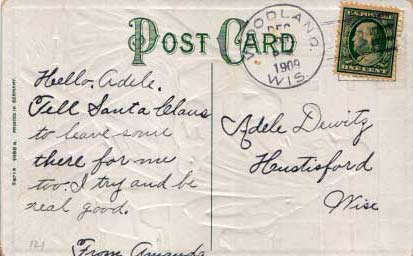 POST CARD
WOODLAND.
DEC
1909
WIS.
Hello. Adele.
Tell Santa Claus
to leave some
there for me
too. I try and be
real good.
From Amanda
Adele Dewitz
Hustisford
Wisc
PRINTED IN GERMANY.
121